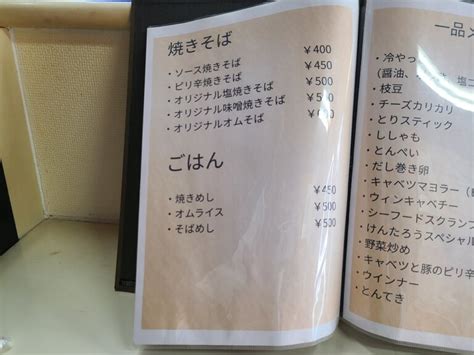 焼きそば
・ソース焼きそば ￥400
・ピリ辛焼きそば ￥450
・オリジナル塩焼きそば ￥500
・オリジナル味噌焼きそば
・オリジナルオムそば
ごはん
・焼きめし ￥450
・オムライス ￥500
・そばめし ￥500
一品メ
・冷やっ
(醤油、
・枝豆
・チーズカリカリ
・とりスティック
・ししゃも
・とんぺい
・だし巻き卵
・キャベツマヨラー
・ウィンキャベチー
・シーフードスクラン
・けんたろうスペシャル
・野菜炒め
・キャベツと豚のピリ辛
・ウインナー
・とんてき